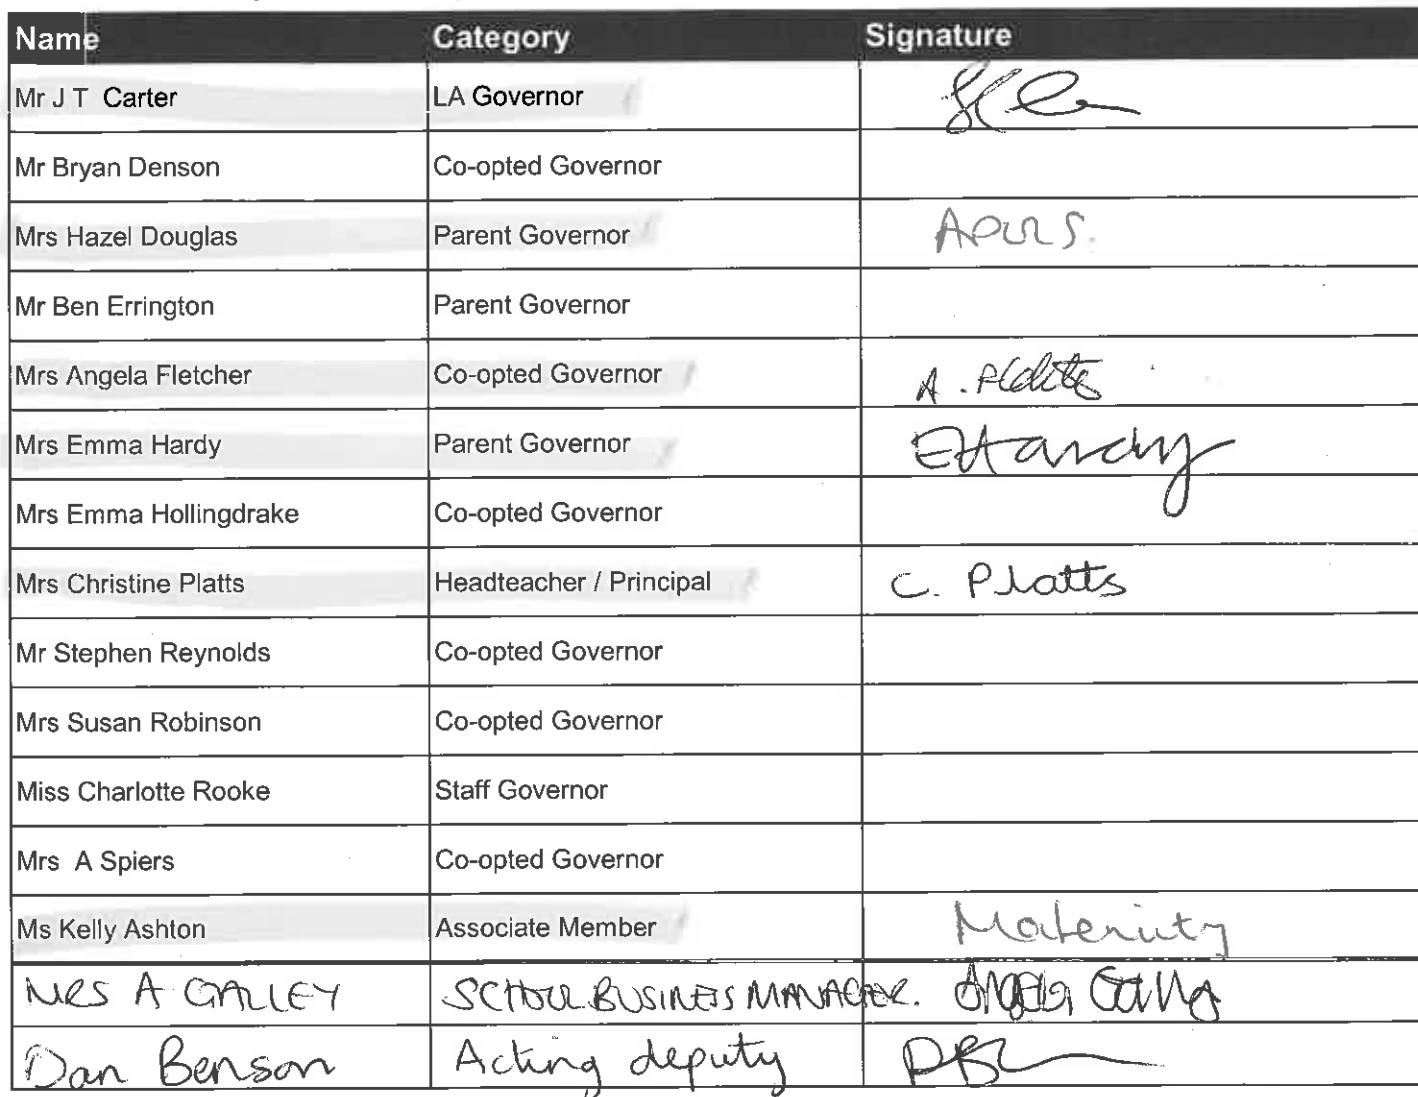 Name Category Signature
Mr J T Carter LA Governor
Mr Bryan Denson Co-opted Governor
Mrs Hazel Douglas Parent Governor
Mr Ben Errington Parent Governor
Mrs Angela Fletcher Co-opted Governor A.
Mrs Emma Hardy Parent Governor EHardy
Mrs Emma Hollingdrake Co-opted Governor
Mrs Christine Platts Headteacher / Principal C. Platts
Mr Stephen Reynolds Co-opted Governor
Mrs Susan Robinson Co-opted Governor
Miss Charlotte Rooke Staff Governor
Mrs A Spiers Co-opted Governor
Ms Kelly Ashton Associate Member Maternity
MRS A GALLEY SCHOOL BUSINESS MANAGER. Angela Galley
Dan Benson Acting deputy